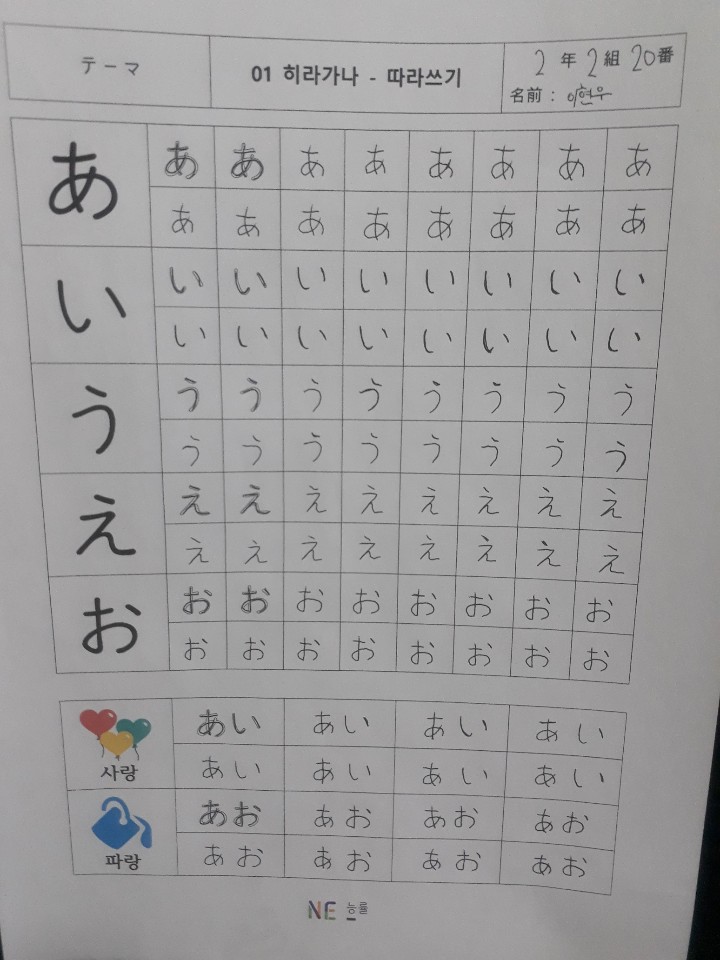 テーマ
01 히라가나 - 따라쓰기
2 年 2 組 20 番
名前 : 이현우
あ あ あ あ あ あ あ あ あ
あ あ あ あ あ あ あ あ
い い い い い い い い い
い い い い い い い い
う う う う う う う う う
う う う う う う う う
え え え え え え え え え
え え え え え え え え
お お お お お お お お お
お お お お お お お お
사랑
あい あい あい あい
あい あい あい あい
파랑
あお あお あお あお
あお あお あお あお
NE 능률